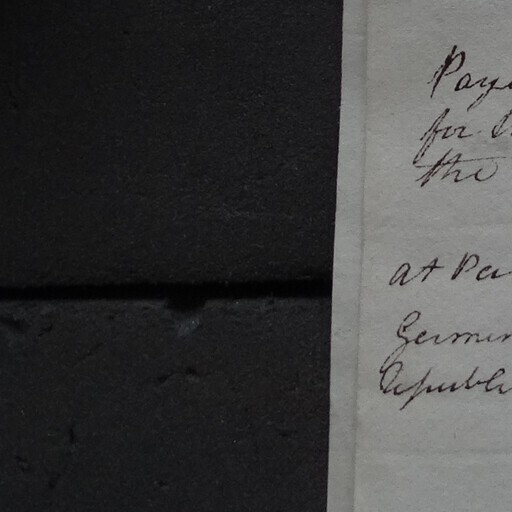 Paye
for
the
at Pa
Germin
Republi